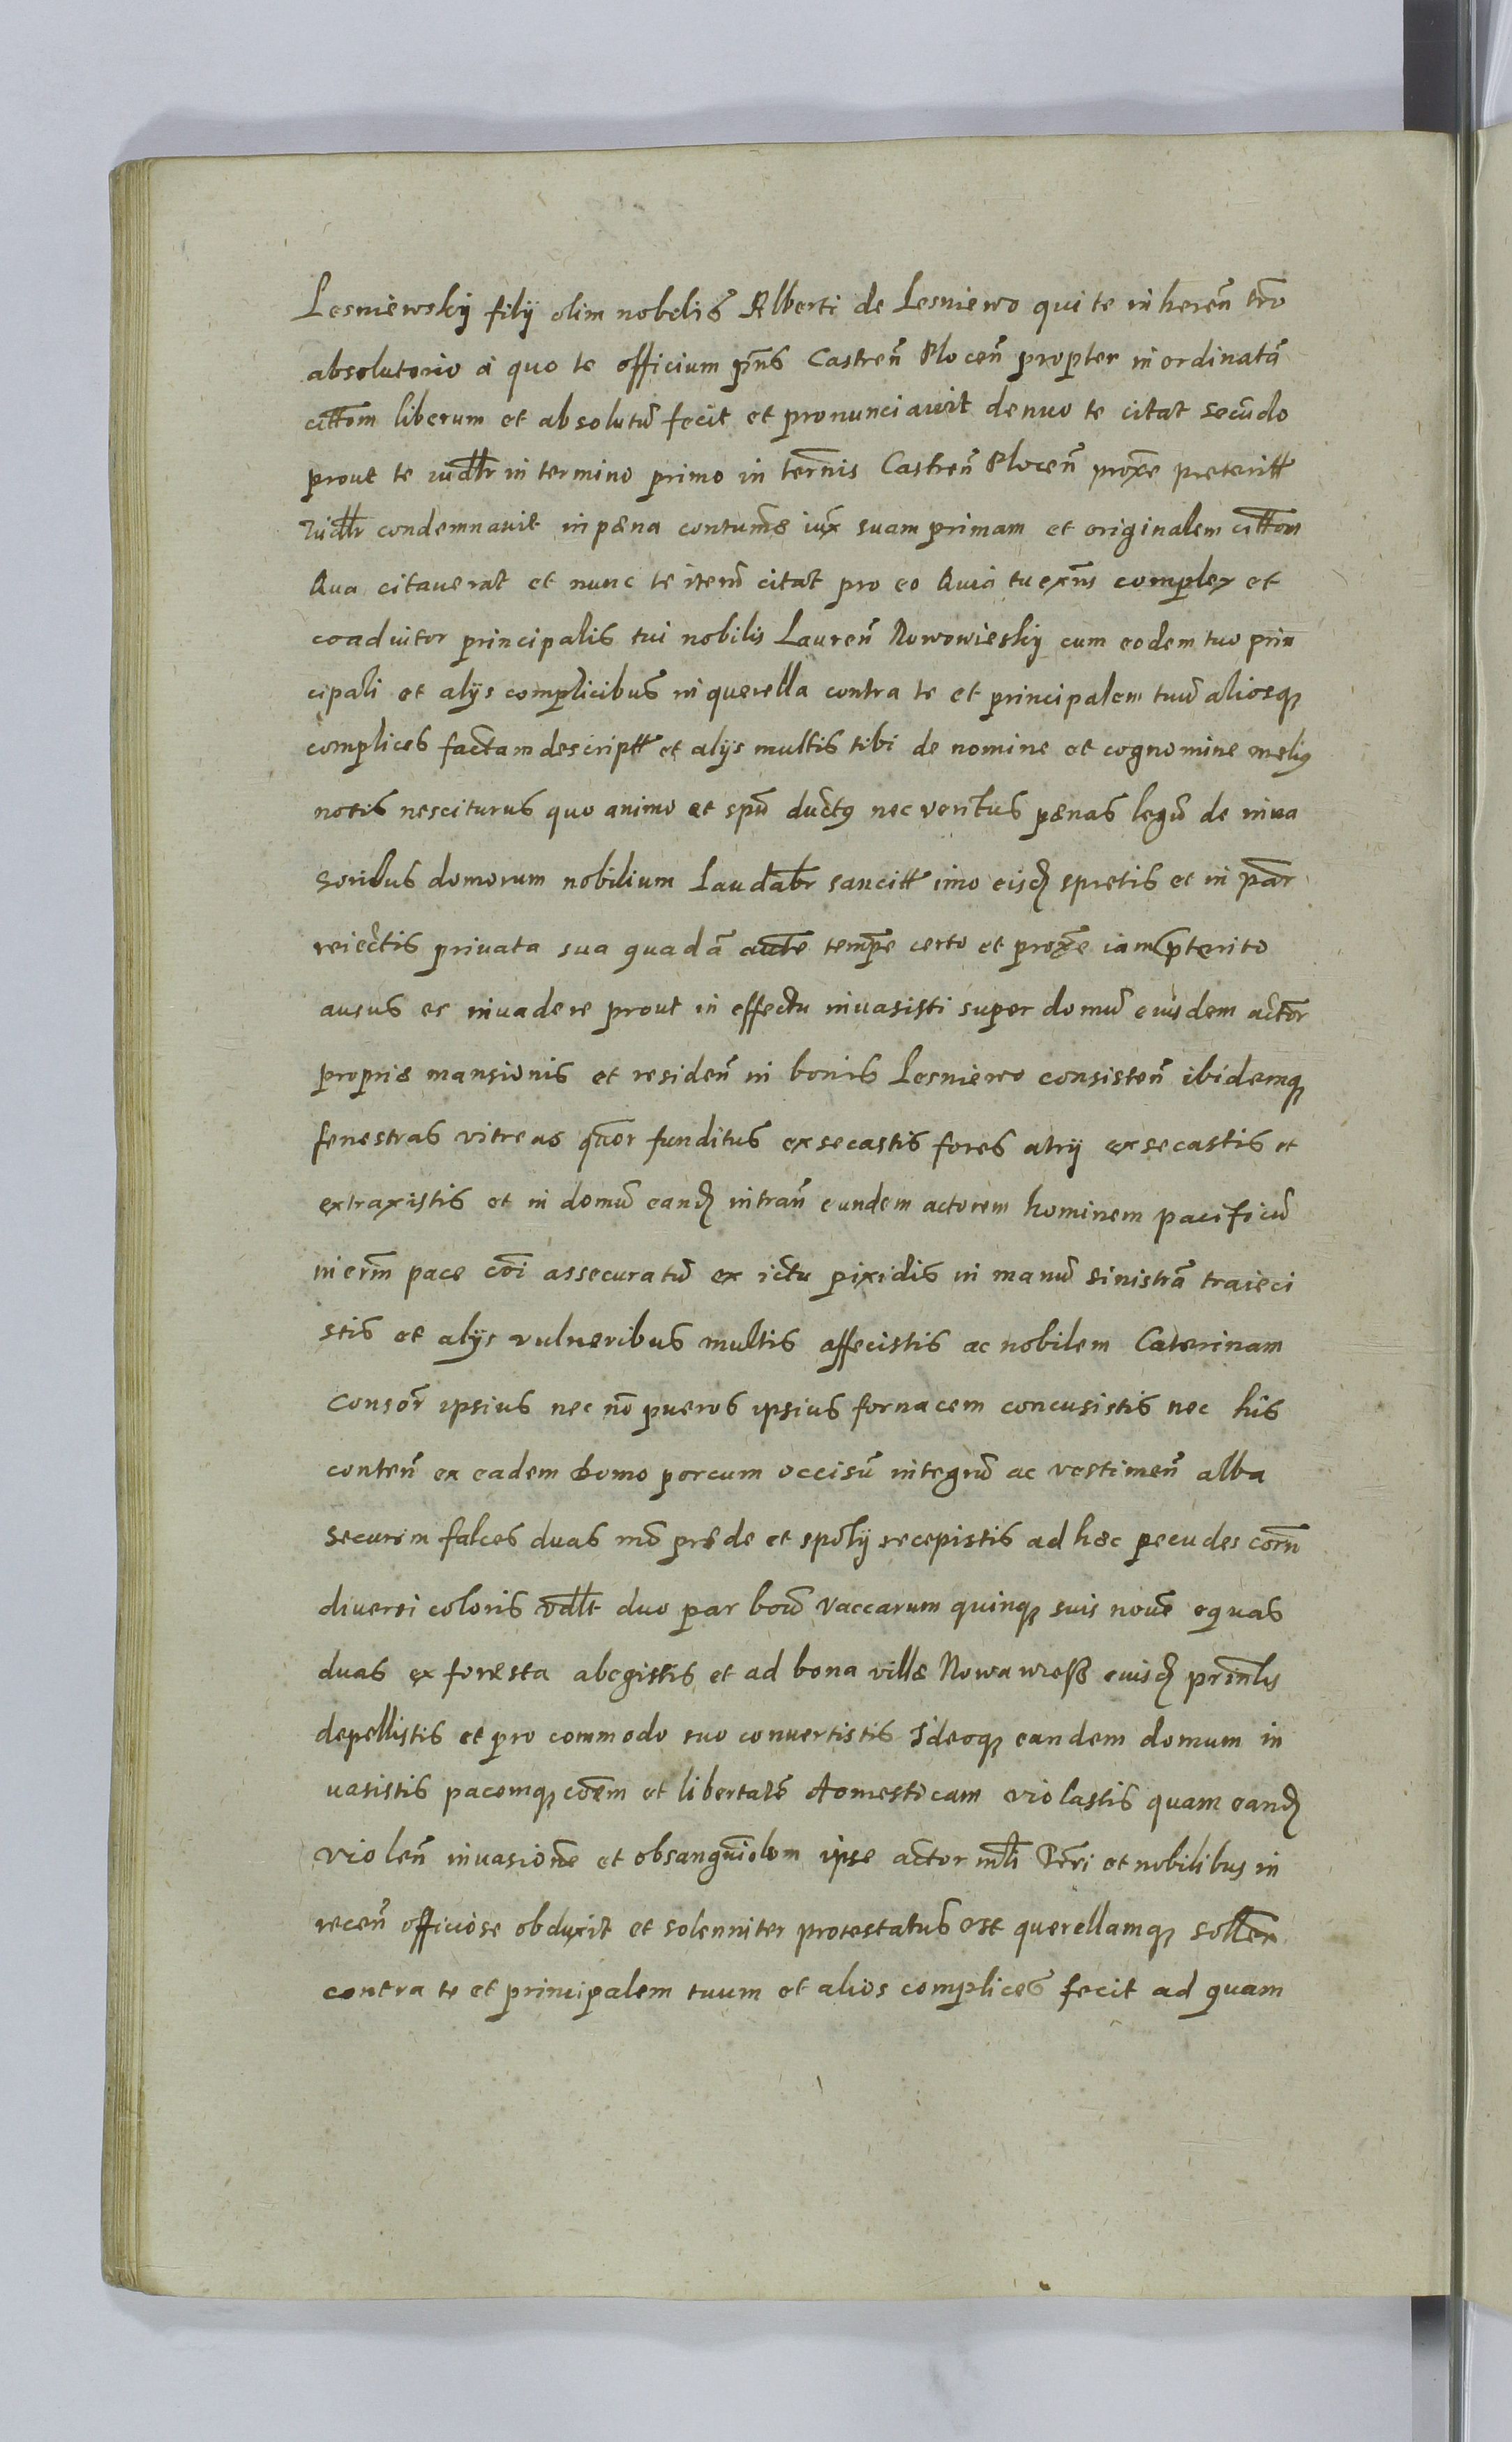 Lesniewskÿ filÿ olim nobilis Alberti de Lesniewo qui te inheren̄ tr̄o
absolutorio a quo te officium pn̄s Castren̄ Plocen̄ propter inordinatā
citt̄om liberum et absolutū fecit et pronunciavit denuo te citat secūdo
prout te iudt̄r in termino primo in tern̄is Castren̄ Plocen̄ prox̄e preteritt
Iudt̄r condemnavit in pęna contum̄ę iux̄ suam primam et originalem citt̄om
Qua citaverat et nunc te iterū citat pro eo Quia tu exn̄s complex et
coadiutor principalis tui nobilis Lauren̄ Nowowieskÿ cum eodem tuo prin
cipali et alÿs complicibus in querella contra te et principalem tuū aliosq;
complices factam descriptt et alÿs multis tibi de nomine et cognomine meliꝰ
notis nesciturus quo animo et spū ductꝰ nec veritus pęnas legū de inva
soribus domorum nobilium Laudabr sancitt imo eisd spretis et in par
reiectis privata sua quadā aut̄e temp̄e certo et prox̄e iam p̄terito
ausus es invadere prout in effectu invasisti super domū eiusdem actōr
proprię mansionis et residen̄ in bonis Lesniewo consisten̄ ibidemq;
fenestras vitreas quor funditus exsecastis fores atrÿ exsecastis et
extraxistis et in domū eand intran̄ eundem actorem hominem pacificū
inerm̄ pace cōi assecuratū ex ictu pixidis in manū sinistrā traieci
stis et alÿs vulneribus multis affecistis ac nobilem Caterinam
Consōr ipsius nec nō pueros ipsius fornacem concusistis nec his
conten̄ ex eadem domo porcum occisū integrū ac vestimen̄ alba
securim falces duas mō pręde et spolÿ recepistis ad hęc pecudes corn̄
diversi coloris vdlt duo par boū vaccarum quinq; suis novē equas
duas ex foresta abegistis et ad bona villę Nowawieß eiusd prin̄lis
depellistis et pro commodo suo convertistis Ideoq; eandem domum in
vasistis pacemq; cōem et libertatē domesticam violastis quam eand
violen̄ invasionē et obsangui͞olem ipse actor mlī Terr̄i et nobilibus in
recen̄ officiose obduxit et solenniter protestatus est querellamq; sollen
contra te et principalem tuum et alios complices fecit ad quam